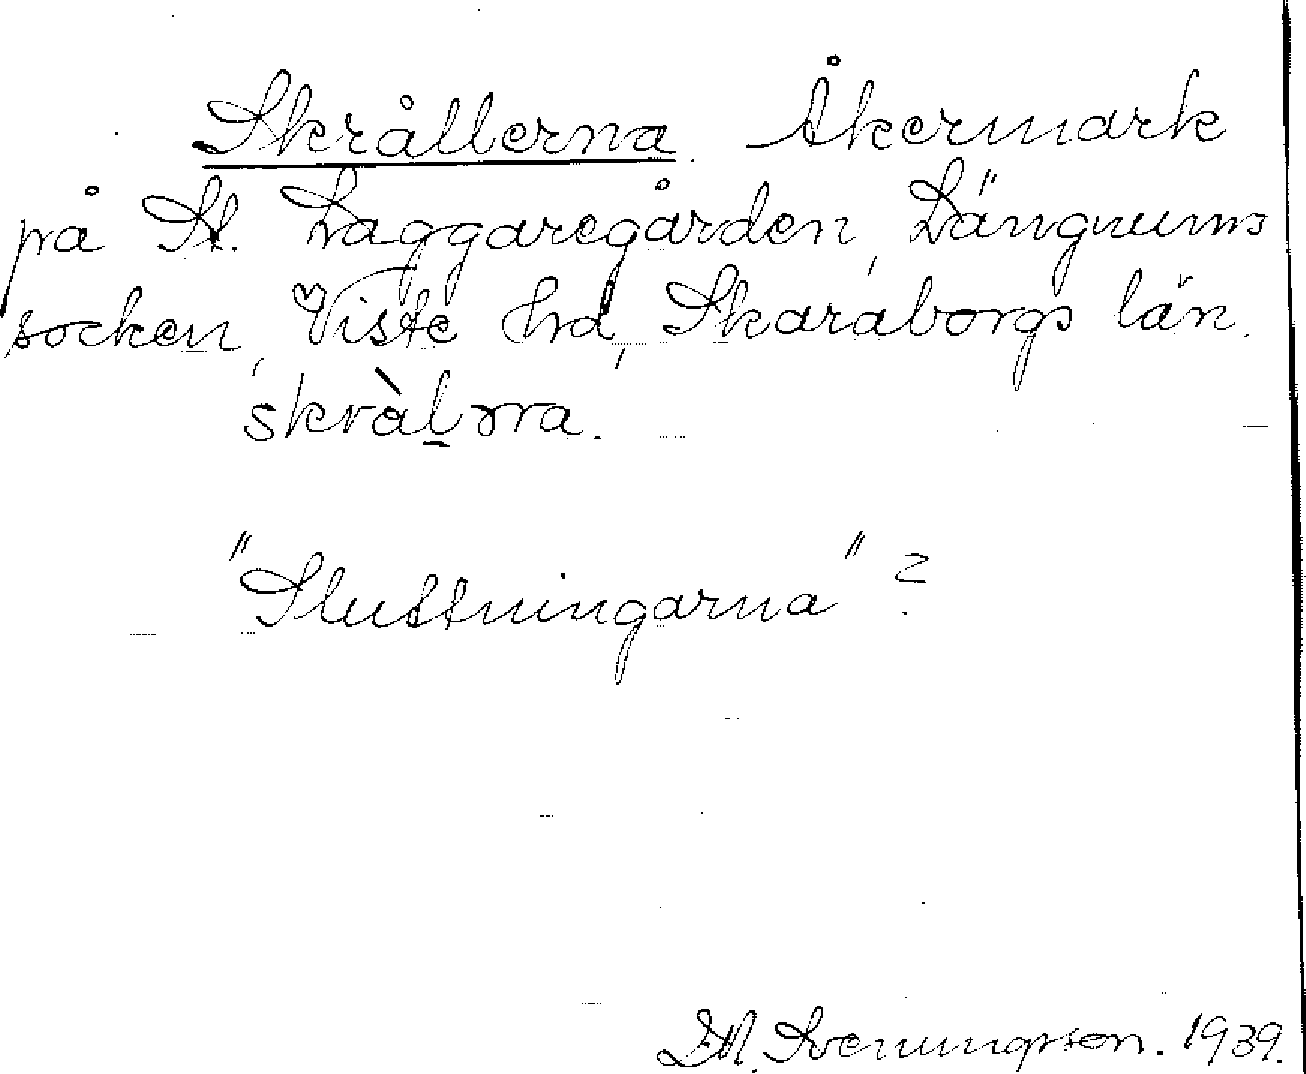 Skrållerna. Åkermark
på St. Laggaregården, Längnums
socken, Viste hd, Skaraborgs län.
skràlrra.
"Sluttningarna"?
Svenungsson. 1939.